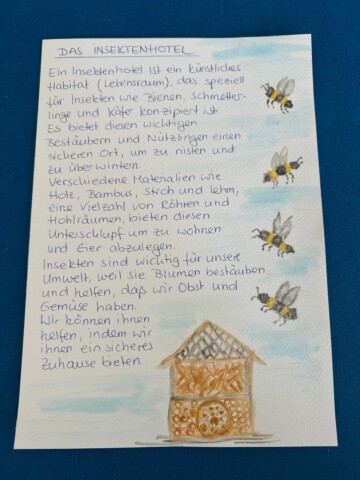 DAS INSEKTENHOTEL
Ein Insektenhotel ist ein künstliches
Habitat (Lebensraum), das speziell
für Insekten wie Bienen, Schmetter-
linge und Käfer konzipiert ist
Es bietet diesen wichtigen
Bestäubern und Nützlingen einen
sicheren Ort, um zu nisten und
zu überwintern.
Verschiedene Materialien wie
Holz, Bambus, Stroh und Lehm,
eine Vielzahl von Röhren und
Hohlräumen, bieten diesen
Unterschlupf um zu wohnen
und Eier abzulegen.
Insekten sind wichtig für unsere
Umwelt, weil sie Blumen bestäuben
und helfen, daß wir Obst und
Gemüse haben.
Wir können ihnen
helfen, indem wir
ihnen ein sicheres
Zuhause bieten.